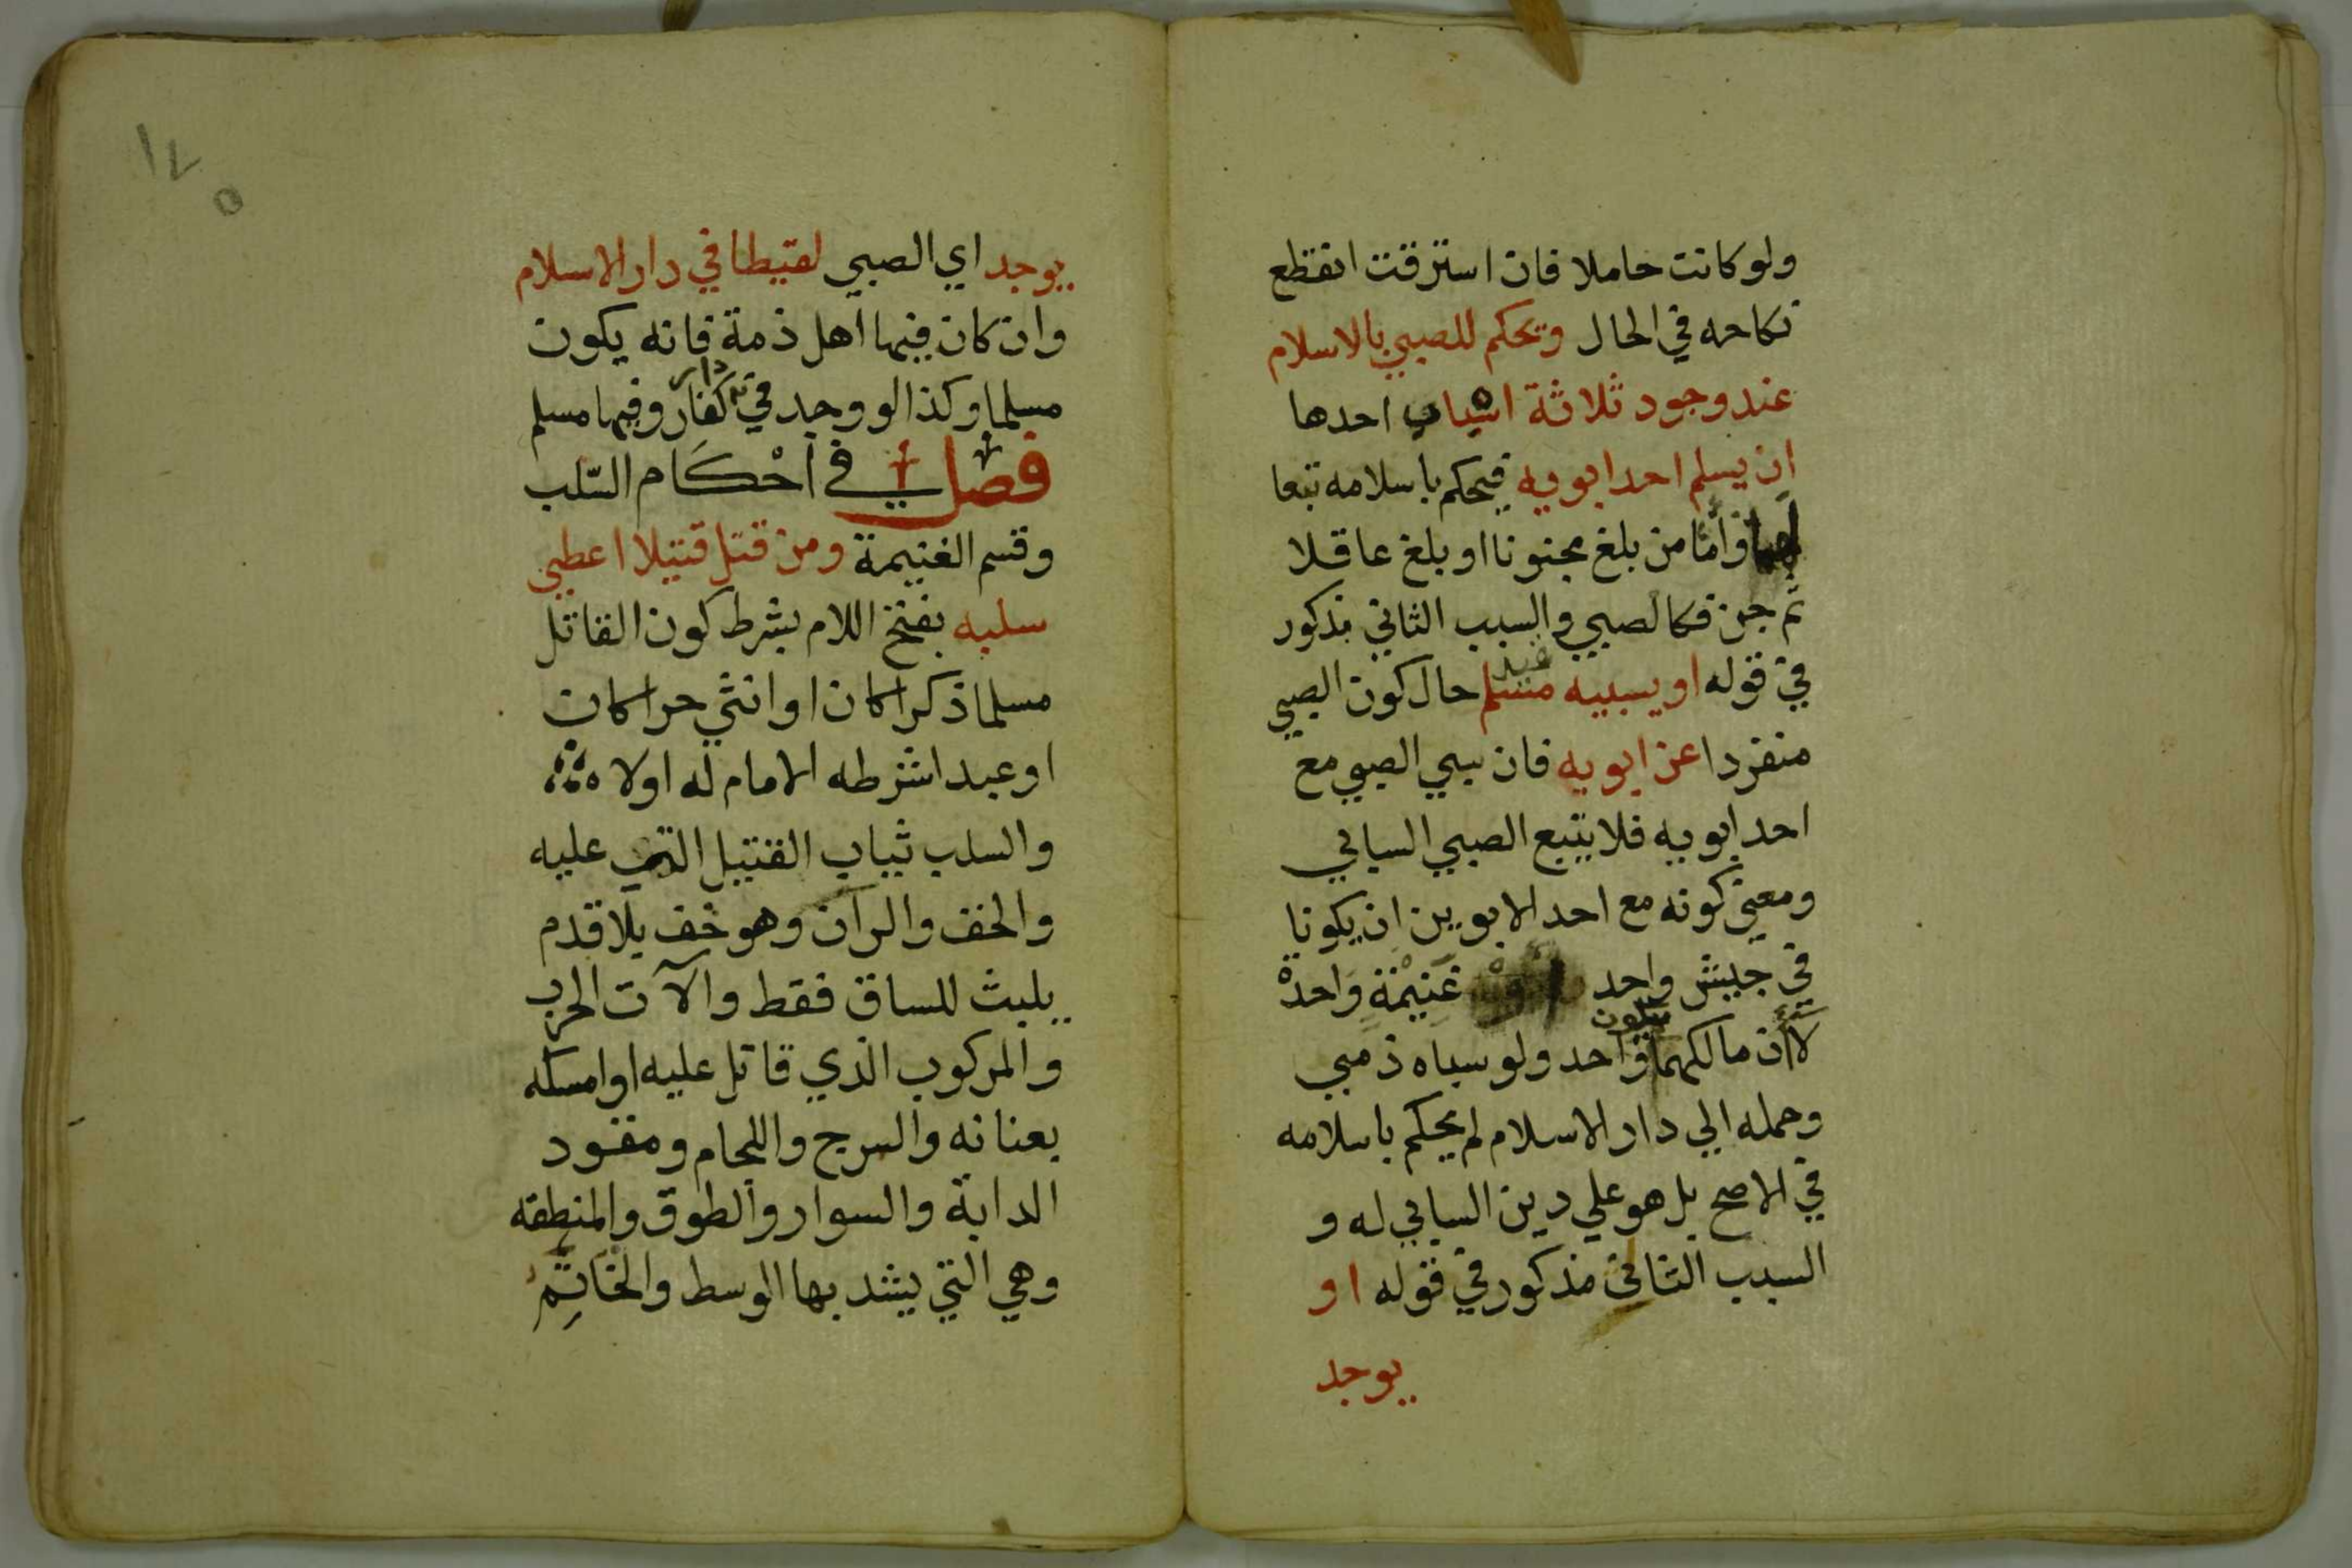 ولو كانت حاملا فان استرقت انقطع
نكاحه في الحال ويحكم للصبي بالاسلام
عند وجود ثلاثة اسباب احدها
ان يسلم احد ابويه فيحكم باسلامه تبعا
لهما واما من بلغ مجنونا او بلغ عاقلا
ثم جن فكالصبي والسبب الثاني مذكور
في قوله او يسبيه مسلم حال كون الصبي
منفردا عن ابويه فان سبي الصبي مع
احد ابويه فلا يتبع الصبي السابي
ومعني كونه مع احد الابوين ان يكونا
في جيش واحد غنيمة واحدة
لا أن مالكهما يكون واحد ولو سباه ذمي
وحمله الي دار الاسلام لم يحكم باسلامه
في الاصح بل هو علي دين السابي له و
السبب الثاني مذكور في قوله او
يوجد
١٧٥
يوجد اي الصبي لقيطا في دار الاسلام
وان كان فيها اهل ذمة فانه يكون
مسلما وكذا لو وجد في دار كفار وفيها مسلم
فصل في أحْكَام السّلب
وقسم الغنيمة ومن قتل قتيلا اعطي
سلبه بفتح اللام بشرط كون القاتل
مسلما ذكرا كان او انثي حرا كان
او عبدا شرطه الامام له اولا
والسلب ثياب القتيل التي عليه
والخف والران وهو خف بلا قدم
يلبث للساق فقط والآت الحرب
والمركوب الذي قاتل عليه او امسكه
بعنانه والسرج واللجام ومقود
الدابة والسوار والطوق والمنطقه
وهي التي يشد بها الوسط والخاتم